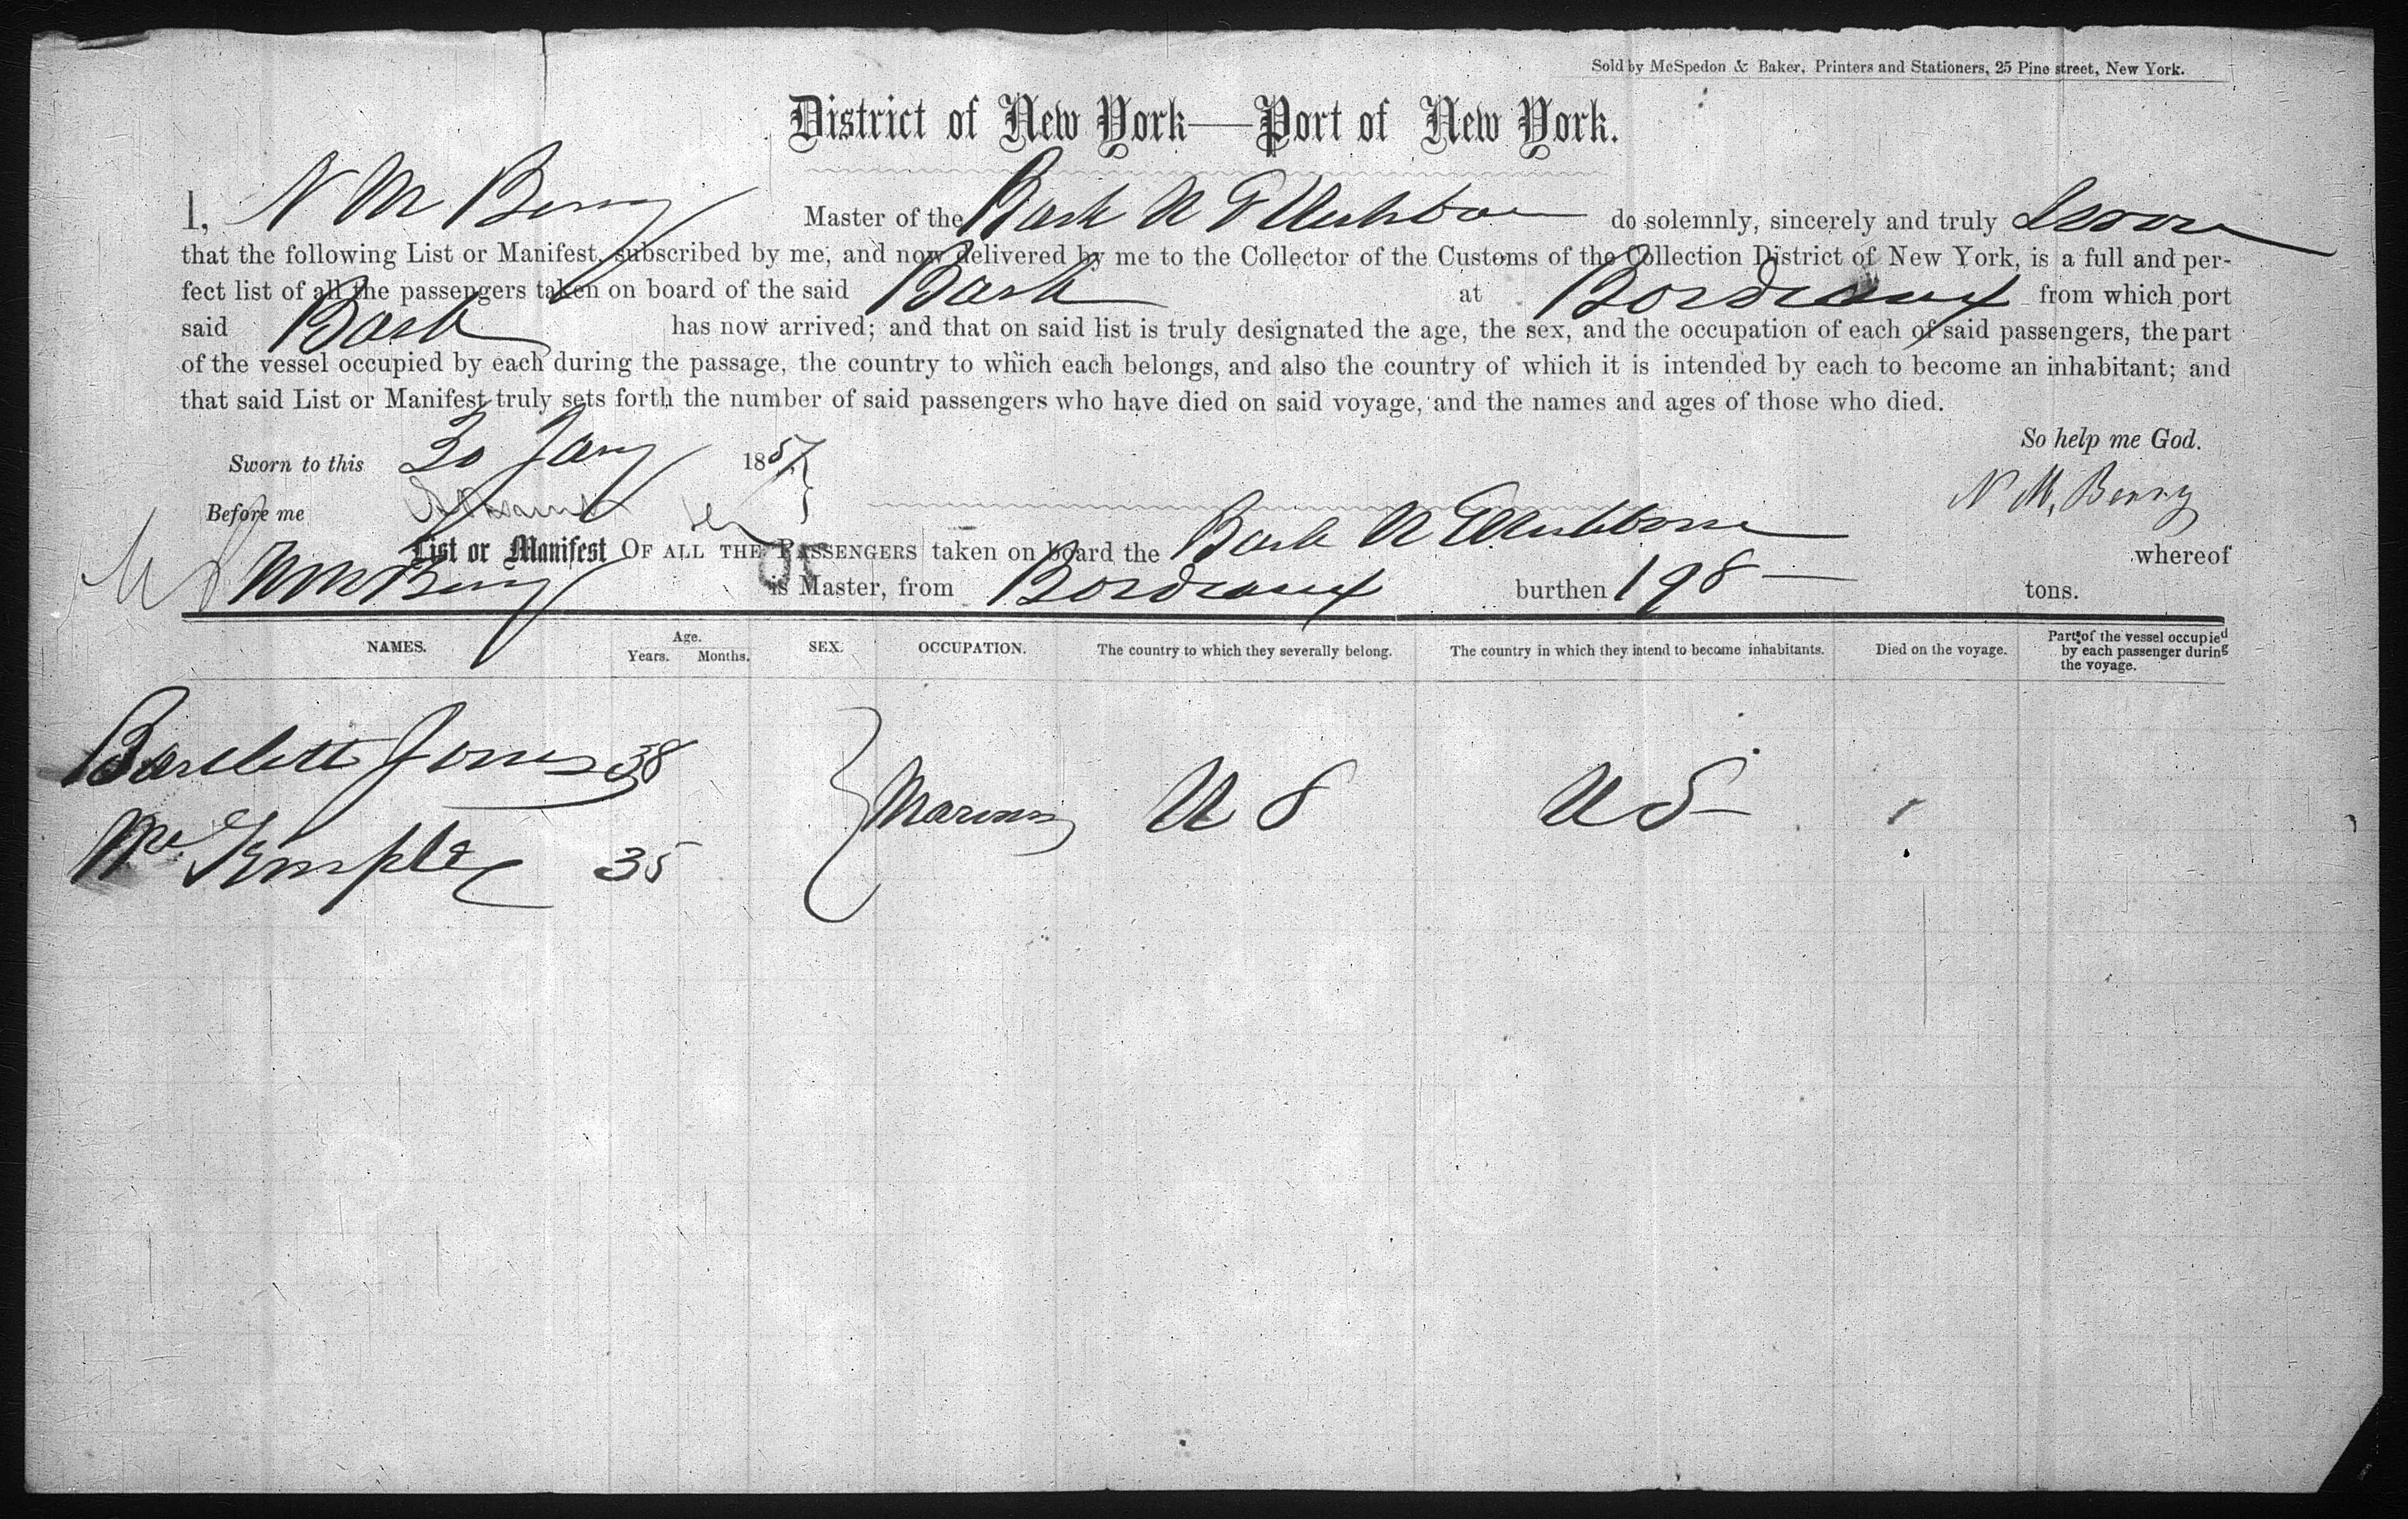 Sold by McSpedon & Baker, Printers and Stationers, 25 Pine street, New York.
District of New York—Port of New York.
I, N M Berry Master of the Bark do solemnly, sincerely and truly Swear
that the following List or Manifest, subscribed by me, and now delivered by me to the Collector of the Customs of the Collection District of New York, is a full and per-
fect list of all the passengers taken on board of the said Bark at Bordeaux from which port
said Bark has now arrived; and that on said list is truly designated the age, the sex, and the occupation of each of said passengers, the part
of the vessel occupied by each during the passage, the country to which each belongs, and also the country of which it is intended by each to become an inhabitant; and
that said List or Manifest truly sets forth the number of said passengers who have died on said voyage, and the names and ages of those who died.
So help me God.
Sworn to this 30 Jany 1857
Before me
N M, Berry
List or Manifest OF ALL THE PASSENGERS taken on board the Bark whereof
N M Berry is Master, from Bordeaux burthen 198 tons.
NAMES. Age. Years. Months. SEX. OCCUPATION. The country to which they severally belong. The country in which they intend to become inhabitants. Died on the voyage. Part of the vessel occupied by each passenger during the voyage.
Bartlett Jones 38
Mariners U S U S
Temple 35